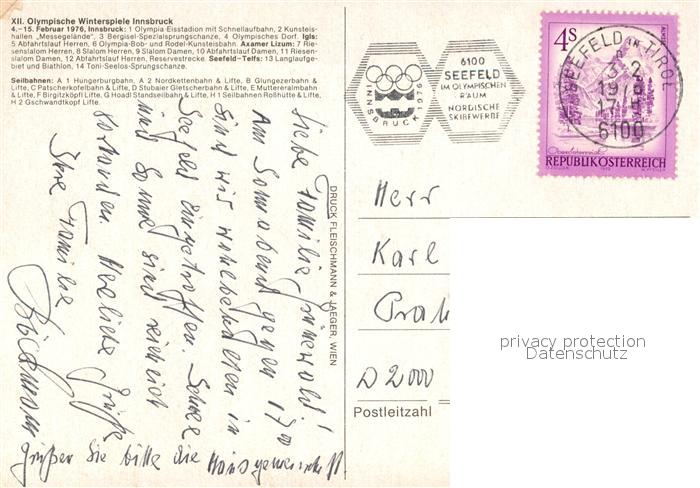 XII. Olympische Winterspiele Innsbruck
4.–15. Februar 1976, Innsbruck: 1 Olympia Eisstadion mit Schnellaufbahn, 2 Kunsteis-
hallen „Messegelände", 3 Bergisel-Spezialsprungschanze, 4 Olympisches Dorf. Igls:
5 Abfahrtslauf Herren, 6 Olympia-Bob- und Rodel-Kunsteisbahn. Axamer Lizum: 7 Rie-
senslalom Herren, 8 Slalom Herren, 9 Slalom Damen, 10 Abfahrtslauf Damen, 11 Riesen-
slalom Damen, 12 Abfahrtslauf Herren, Reservestrecke. Seefeld–Telfs: 13 Langlaufge-
biet und Biathlon, 14 Toni-Seelos-Sprungschanze.
Seilbahnen: A 1 Hungerburgbahn, A 2 Nordkettenbahn & Lifte, B Glungezerbahn &
Lifte, C Patscherkofelbahn & Lifte, D Stubaier Gletscherbahn & Lifte, E Muttereralmbahn
& Lifte, F Birgitzköpfl Lifte, G Hoadl Standseilbahn & Lifte, H 1 Seilbahnen Roßhütte & Lifte,
H 2 Gschwandtkopf Lifte.
Liebe Familie Grünewald!
Am Sonnabend gegen 17⁰⁰
sind wir wohlbehalten in
Seefeld eingetroffen. Schnee
und Sonne sind reichlich
vorhanden. Herzliche Grüße
Ihre Familie
grüßen Sie bitte die Hausgemeinschaft
DRUCK FLEISCHMANN & JAEGER, WIEN
INNSBRUCK 1976
6100
SEEFELD
IM OLYMPISCHEN
RAUM
NORDISCHE
SKIBEWERBE
SEEFELD IN TIROL
6100
4S
REPUBLIK ÖSTERREICH
Herr
Karl
D 2000
Postleitzahl
privacy protection
Datenschutz